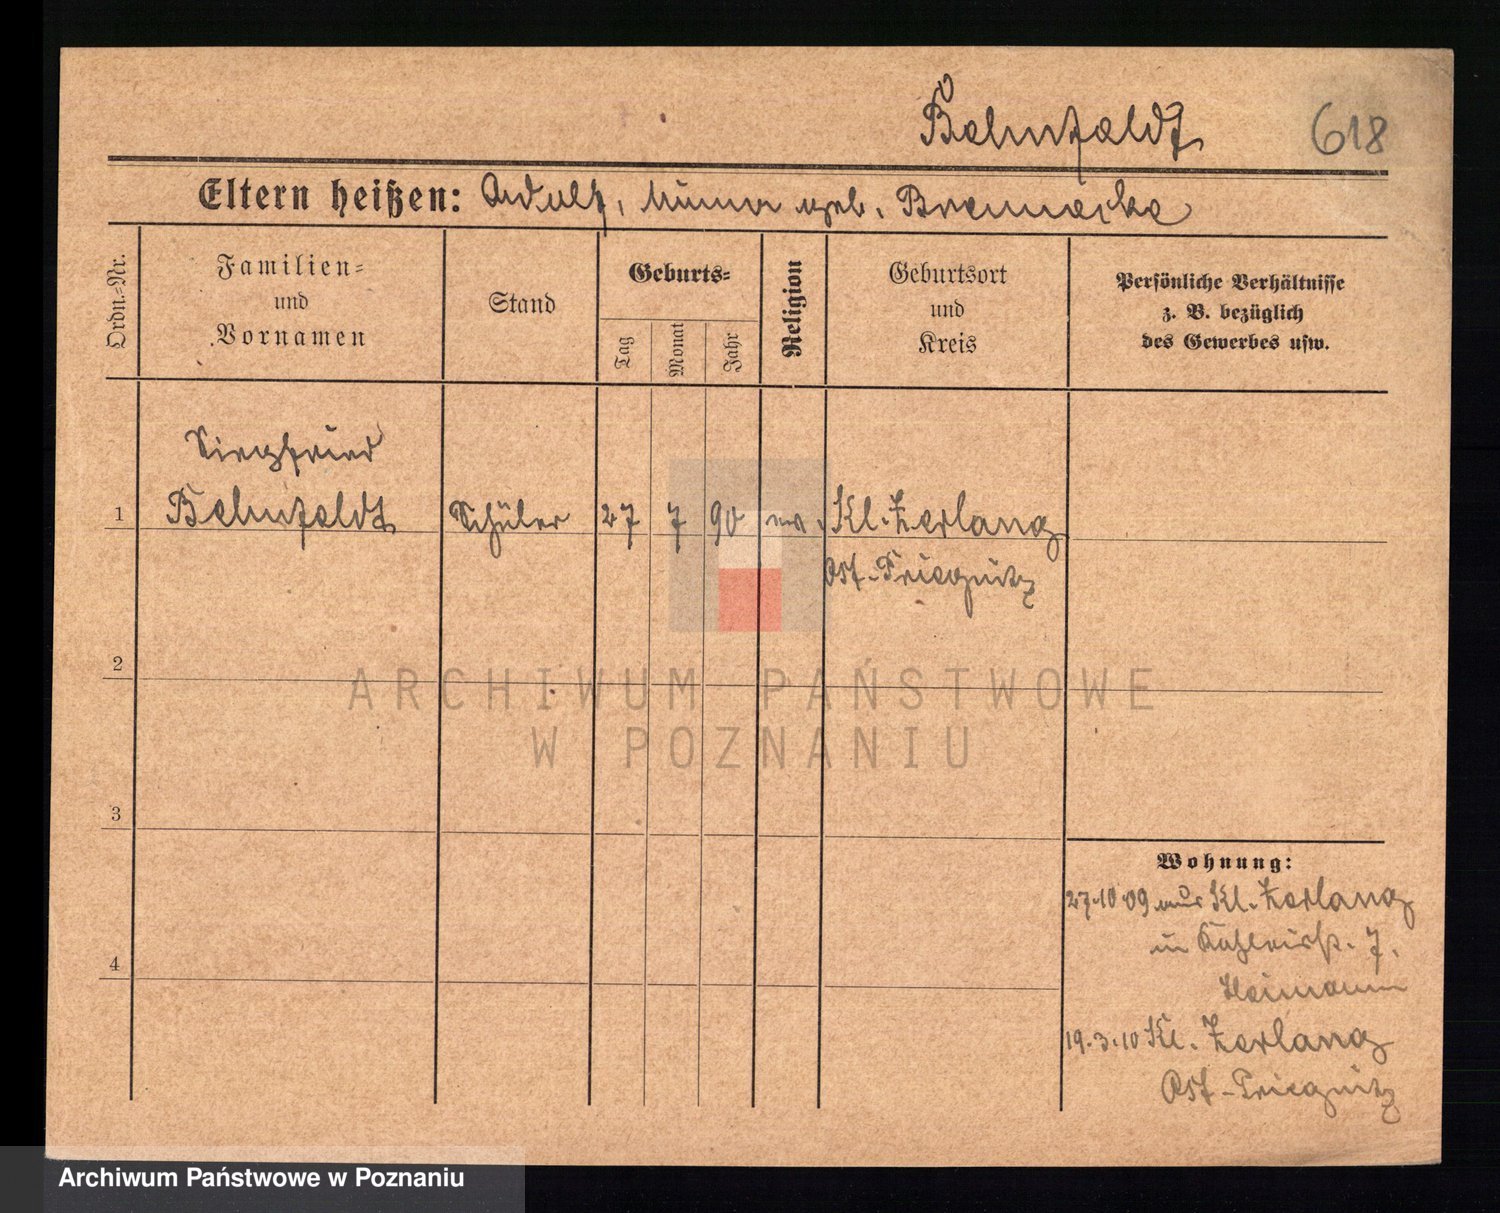 Behnfeldt 618
Eltern heißen: Adolf, Minna geb. Brennecke
Ordn.-Nr.
Familien-
und
Vornamen
Stand
Geburts-
Tag
Monat
Jahr
Religion
Geburtsort
und
Kreis
Persönliche Verhältnisse
z. B. bezüglich
des Gewerbes usw.
Siegfried
1 Behnfeldt Schüler 27 7 90 ev. Kl. Zerlang
Ost-Priegnitz
2
ARCHIWUM PAŃSTWOWE
W POZNANIU
3
Wohnung:
27.10 09 aus Kl. Zerlang
in 7.
4
Heimann
19.3.10 Kl. Zerlang
Ost-Priegnitz
Archiwum Państwowe w Poznaniu